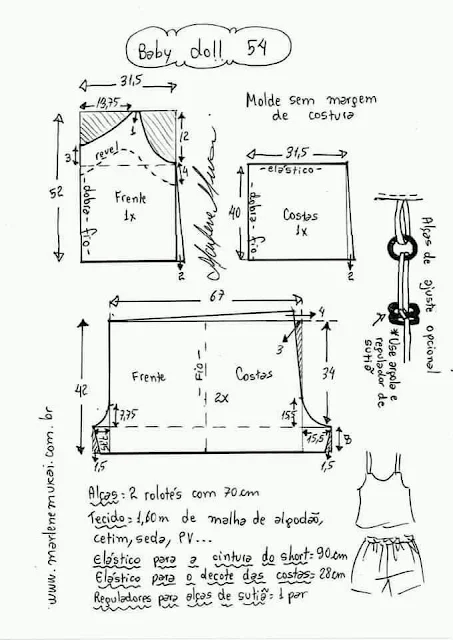 Baby doll 54
31,5
19,75
1
12
3
revel
4
52
dobra - fio
Frente
1x
2
Marlene Mukai
Molde sem margem
de costura
31,5
elástico
40
dobra - fio
Costas
1x
2
Alças de ajuste opcional
* Use argola e
regulador de
sutiã
67
4
3
42
Frente
Fio
Costas
2x
34
7,75
15
15,5
8
1,5
1,5
Alças = 2 rolotés com 70 cm
Tecido = 1,60 m de malha de algodão,
cetim, seda, PV...
Elástico para a cintura do short = 90 cm
Elástico para o decote das costas = 28 cm
Reguladores para alças de sutiã = 1 par
www.marlenemukai.com.br